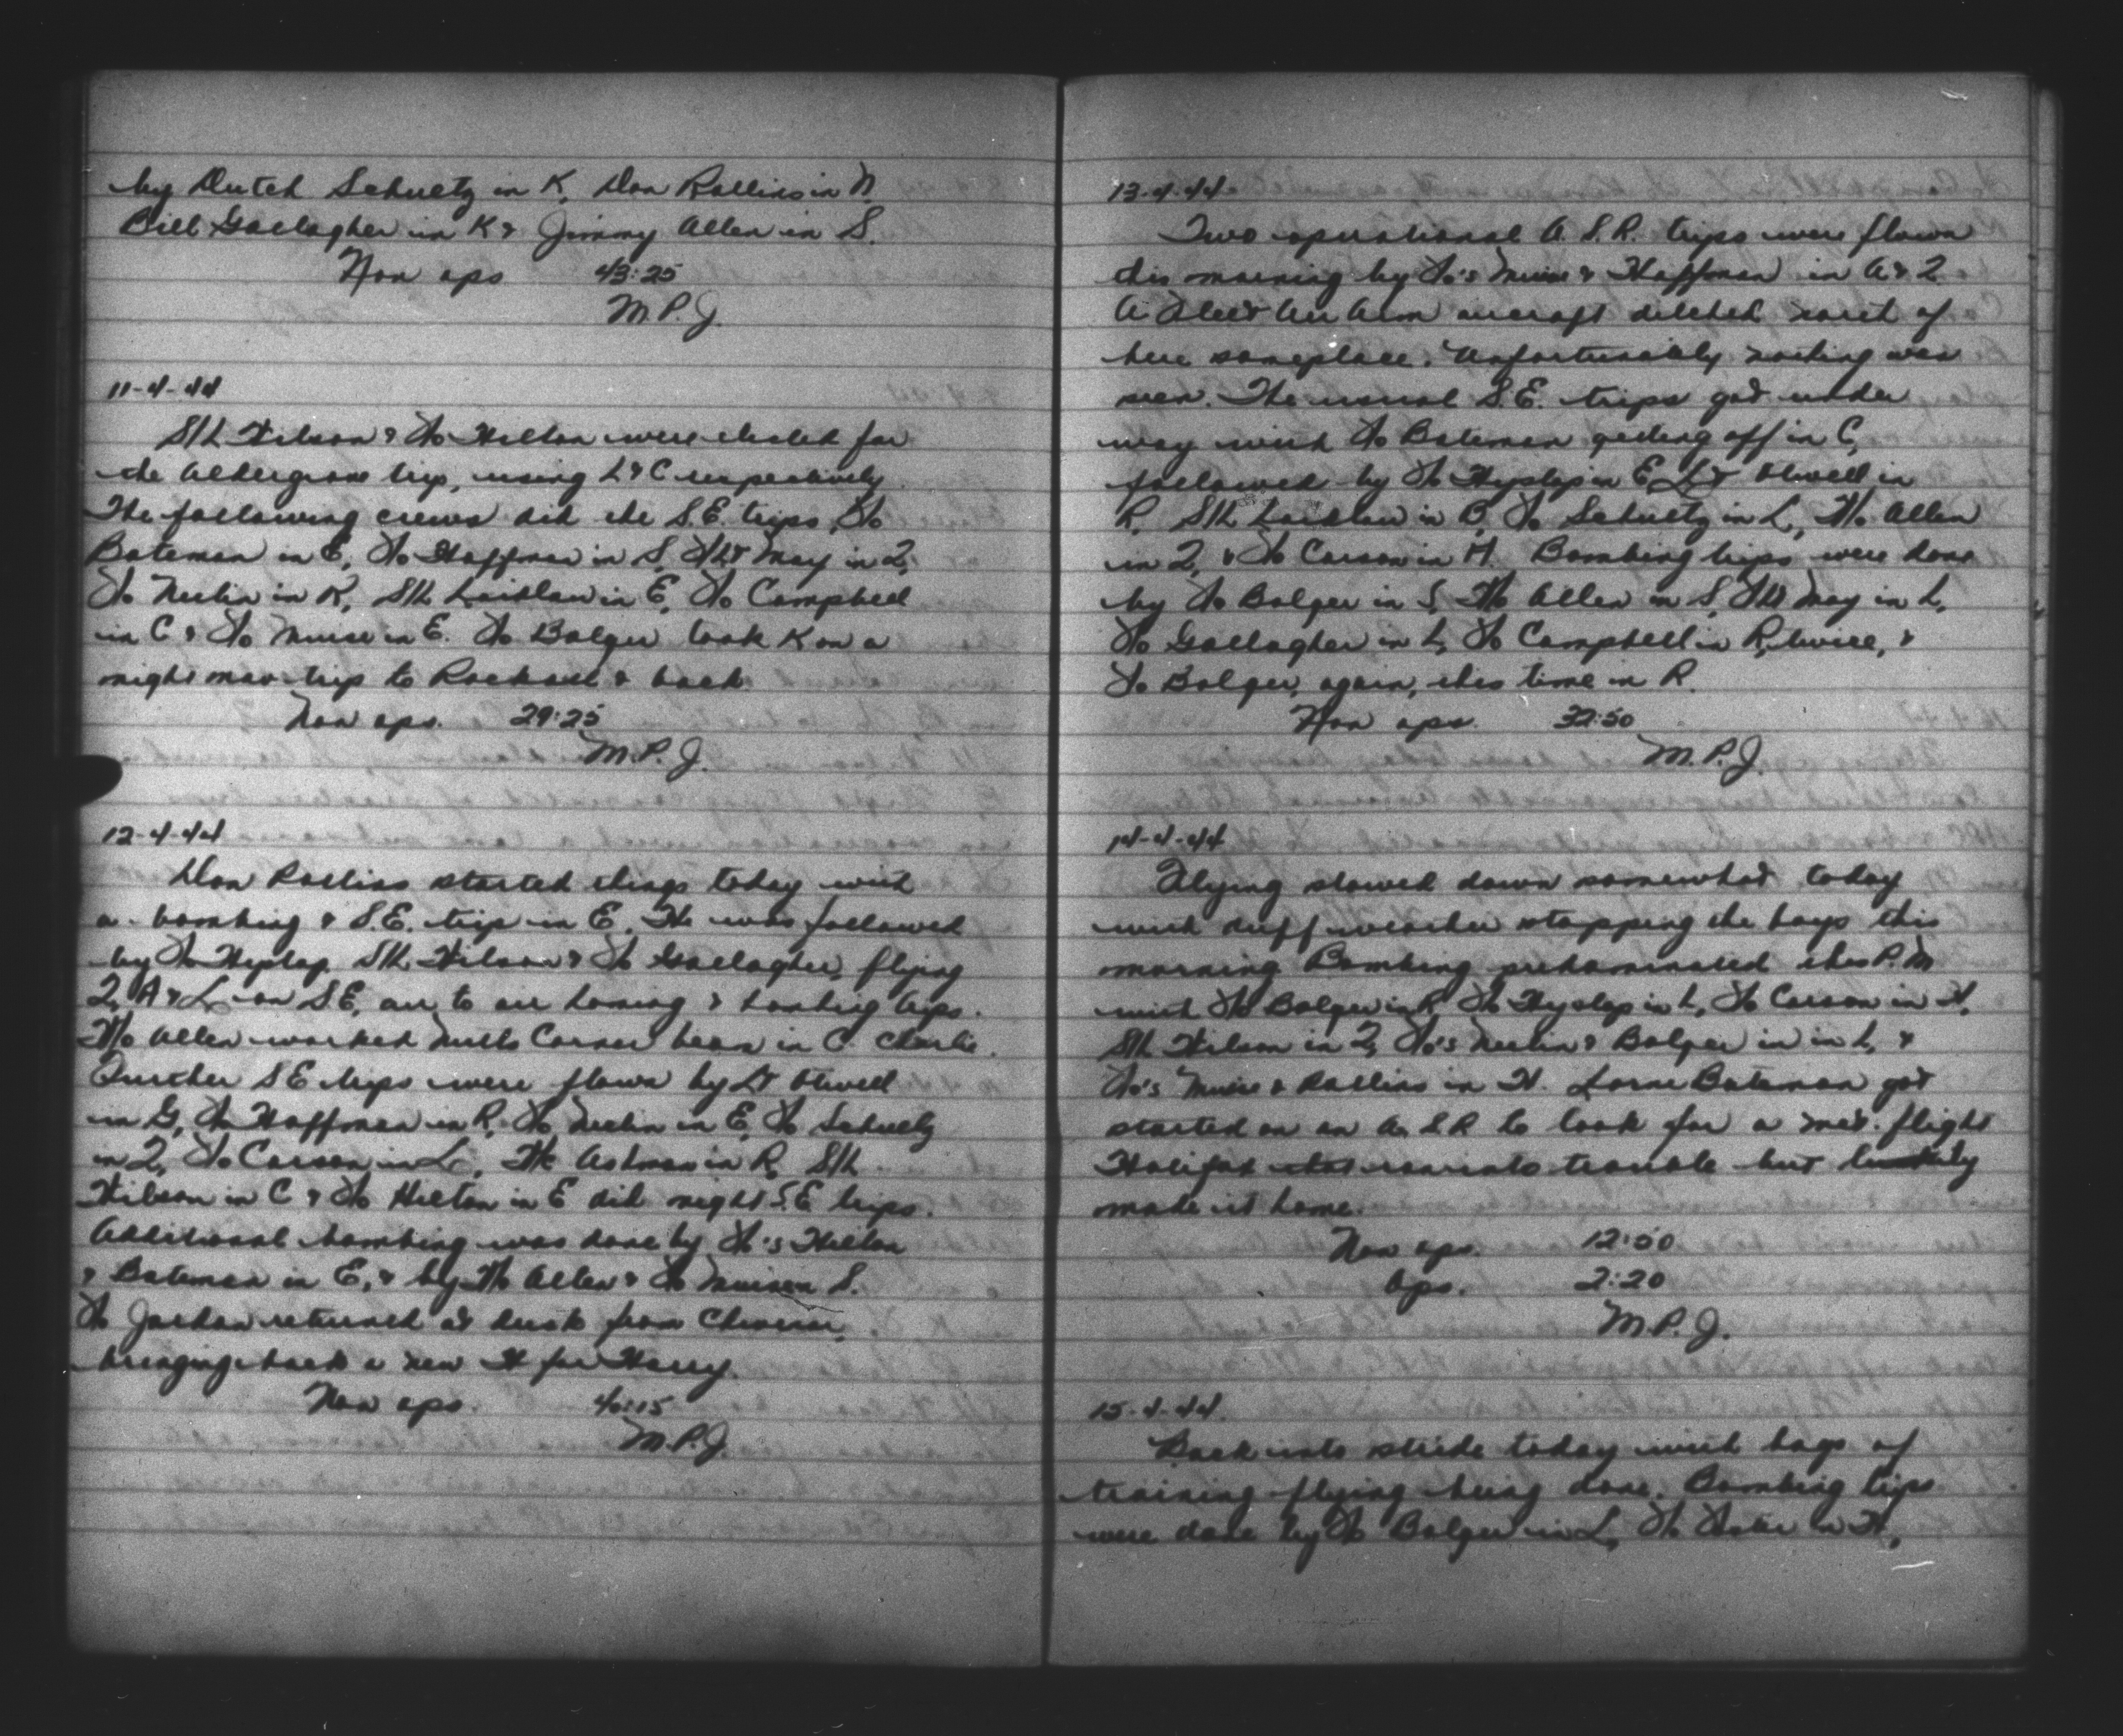 by Dutch Schuetz in K, Don Rollins in N,
Bill Gallagher in K & Jimmy Allen in S.
Non ops 43:25
M.P.J.
11-4-44
S/L Wilson & F/o Hilton were elected for
the Aldergrove trip, using L & C respectively.
The following crews did the S.E. trips, F/o
Bateman in E, F/o Hoffman in S, F/Lt May in 2,
F/o Neelin in K, S/L Laidlaw in E, F/o Campbell
in C & F/o Muise in E. F/o Bolger took K on a
night nav trip to Rockall & back.
Non ops. 29:25
M.P.J.
12-4-44
Don Rollins started things today with
a bombing & S.E. trip in E. He was followed
by F/o Hyslop, S/L Wilson & F/o Gallagher, flying
2, A & L on S.E, air to air homing & bombing trips.
W/o Allen worked Nutts Corner beam in C Charlie.
Further S E trips were flown by Lt Otwell
in G, F/o Hoffman in R, F/o Neelin in E, F/o Schuetz
in 2, F/o Carson in L, in R, S/L
Wilson in C & F/o Hilton in E did night S.E trips.
Additional bombing was done by F/o's Hilton
& Bateman in E, & by W/o Allen & F/o Muise in S.
F/o Jordan returned at dusk from Chivenor,
bringing back a new H for Harry.
Non ops. 40:15
M.P.J.
13-4-44
Two operational A.S.R. trips were flown
this morning by F/o's Muise & Hoffman in A & 2
A Fleet Air Arm aircraft ditched north of
here someplace. Unfortunately nothing was
seen. The usual S.E. trips got under
way with F/o Bateman getting off in C,
followed by F/o Hyslop in E, Lt Otwell in
R, S/L Laidlaw in B, F/o Schuetz in L, W/o Allen
in 2, & F/o Carson in H. Bombing trips were done
by F/o Bolger in S, W/o Allen in S, F/Lt May in L,
F/o Gallagher in L, F/o Campbell in R, twice, &
F/o Bolger, again, this time in R.
Non ops. 32:50
M.P.J.
14-4-44
Flying slowed down somewhat today
with duff weather stopping the boys this
morning. Bombing predominated this P.M
with F/o Bolger in R, F/o Hyslop in L, F/o Carson in H,
S/L Wilson in 2, F/o's Neelin & Bolger in in L, &
F/o's Muise & Rollins in H. Lorne Bateman got
started on an A.S.R to look for a met. flight
Halifax that ran into trouble but luckily
made it home.
Non ops. 12:50
Ops. 2:20
M.P.J.
15-4-44.
Back into stride today with bags of
training flying being done. Bombing trips
were done by F/o Bolger in L, F/o in H,